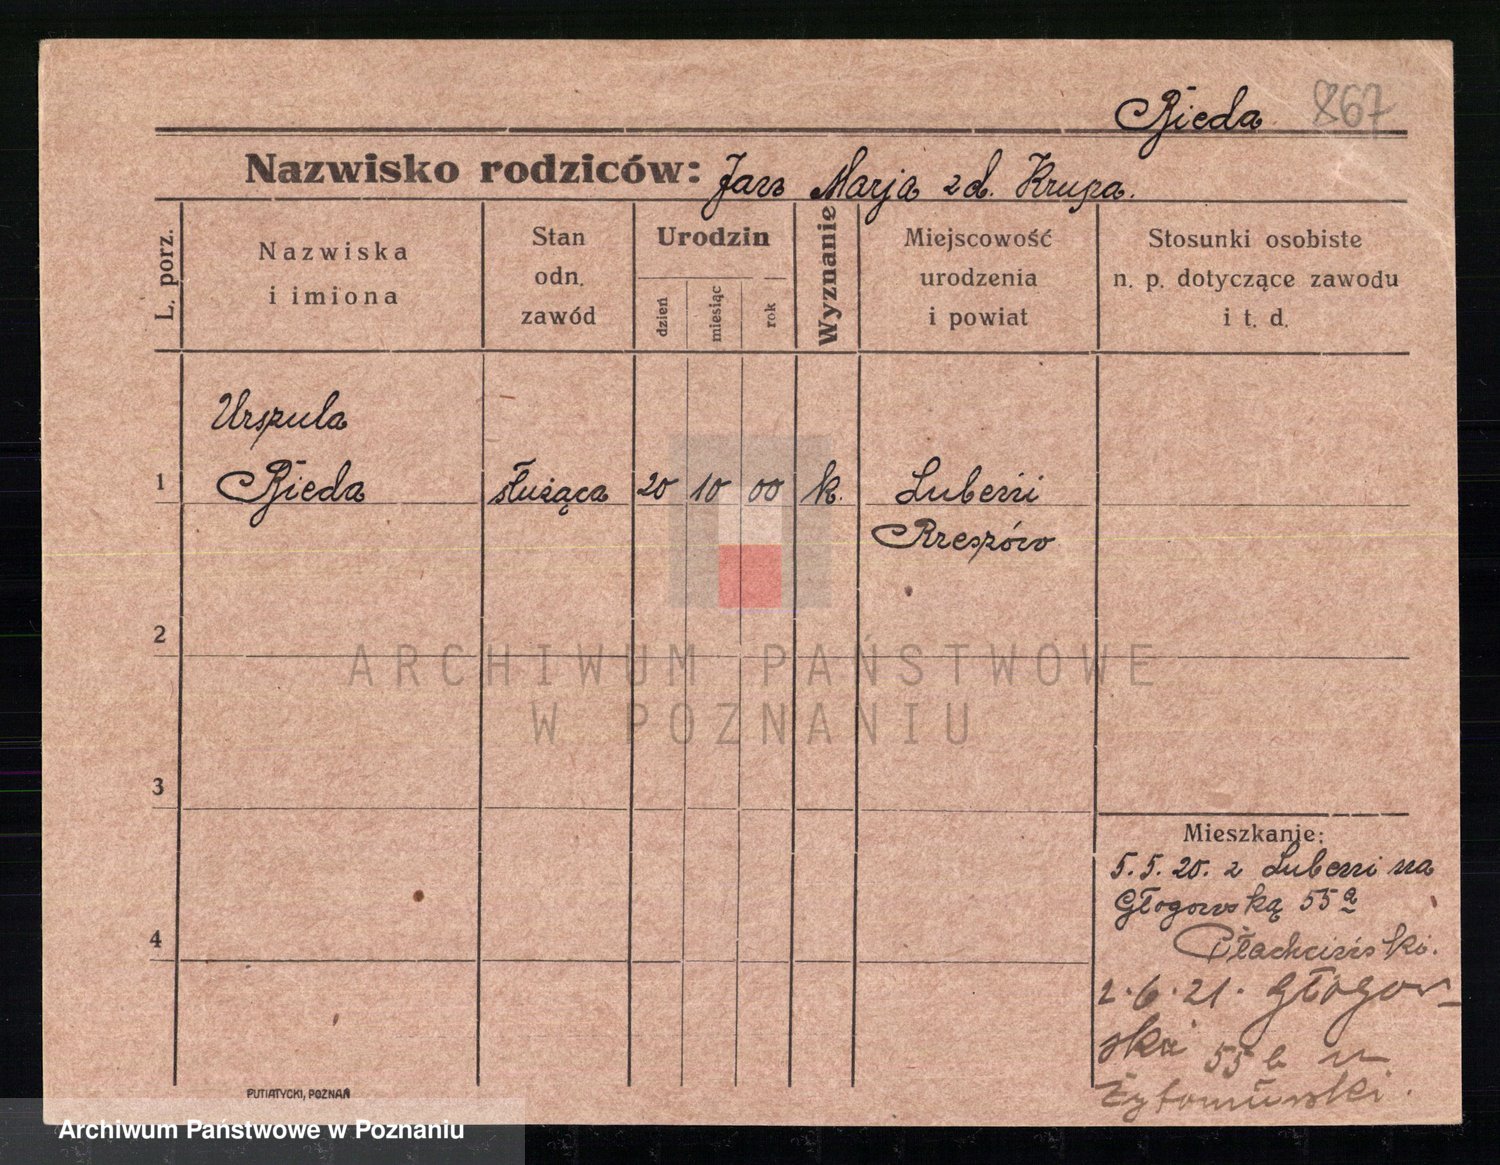 Bieda 867
Nazwisko rodziców: Jan Marja zd. Krupa.
L. porz.
Nazwiska
i imiona
Stan
odn.
zawód
Urodzin
dzień
miesiąc
rok
Wyznanie
Miejscowość
urodzenia
i powiat
Stosunki osobiste
n. p. dotyczące zawodu
i t. d.
Urszula
1 Bieda służąca 20 10 00 k. Lubeni
Rzeszów
2
3
4
Mieszkanie:
5.5.20. z Lubeni na
Głogowską 55a
2.6.21. Głogow-
ska 55 b u
PUTIATYCKI, POZNAŃ
ARCHIWUM PAŃSTWOWE
W POZNANIU
Archiwum Państwowe w Poznaniu